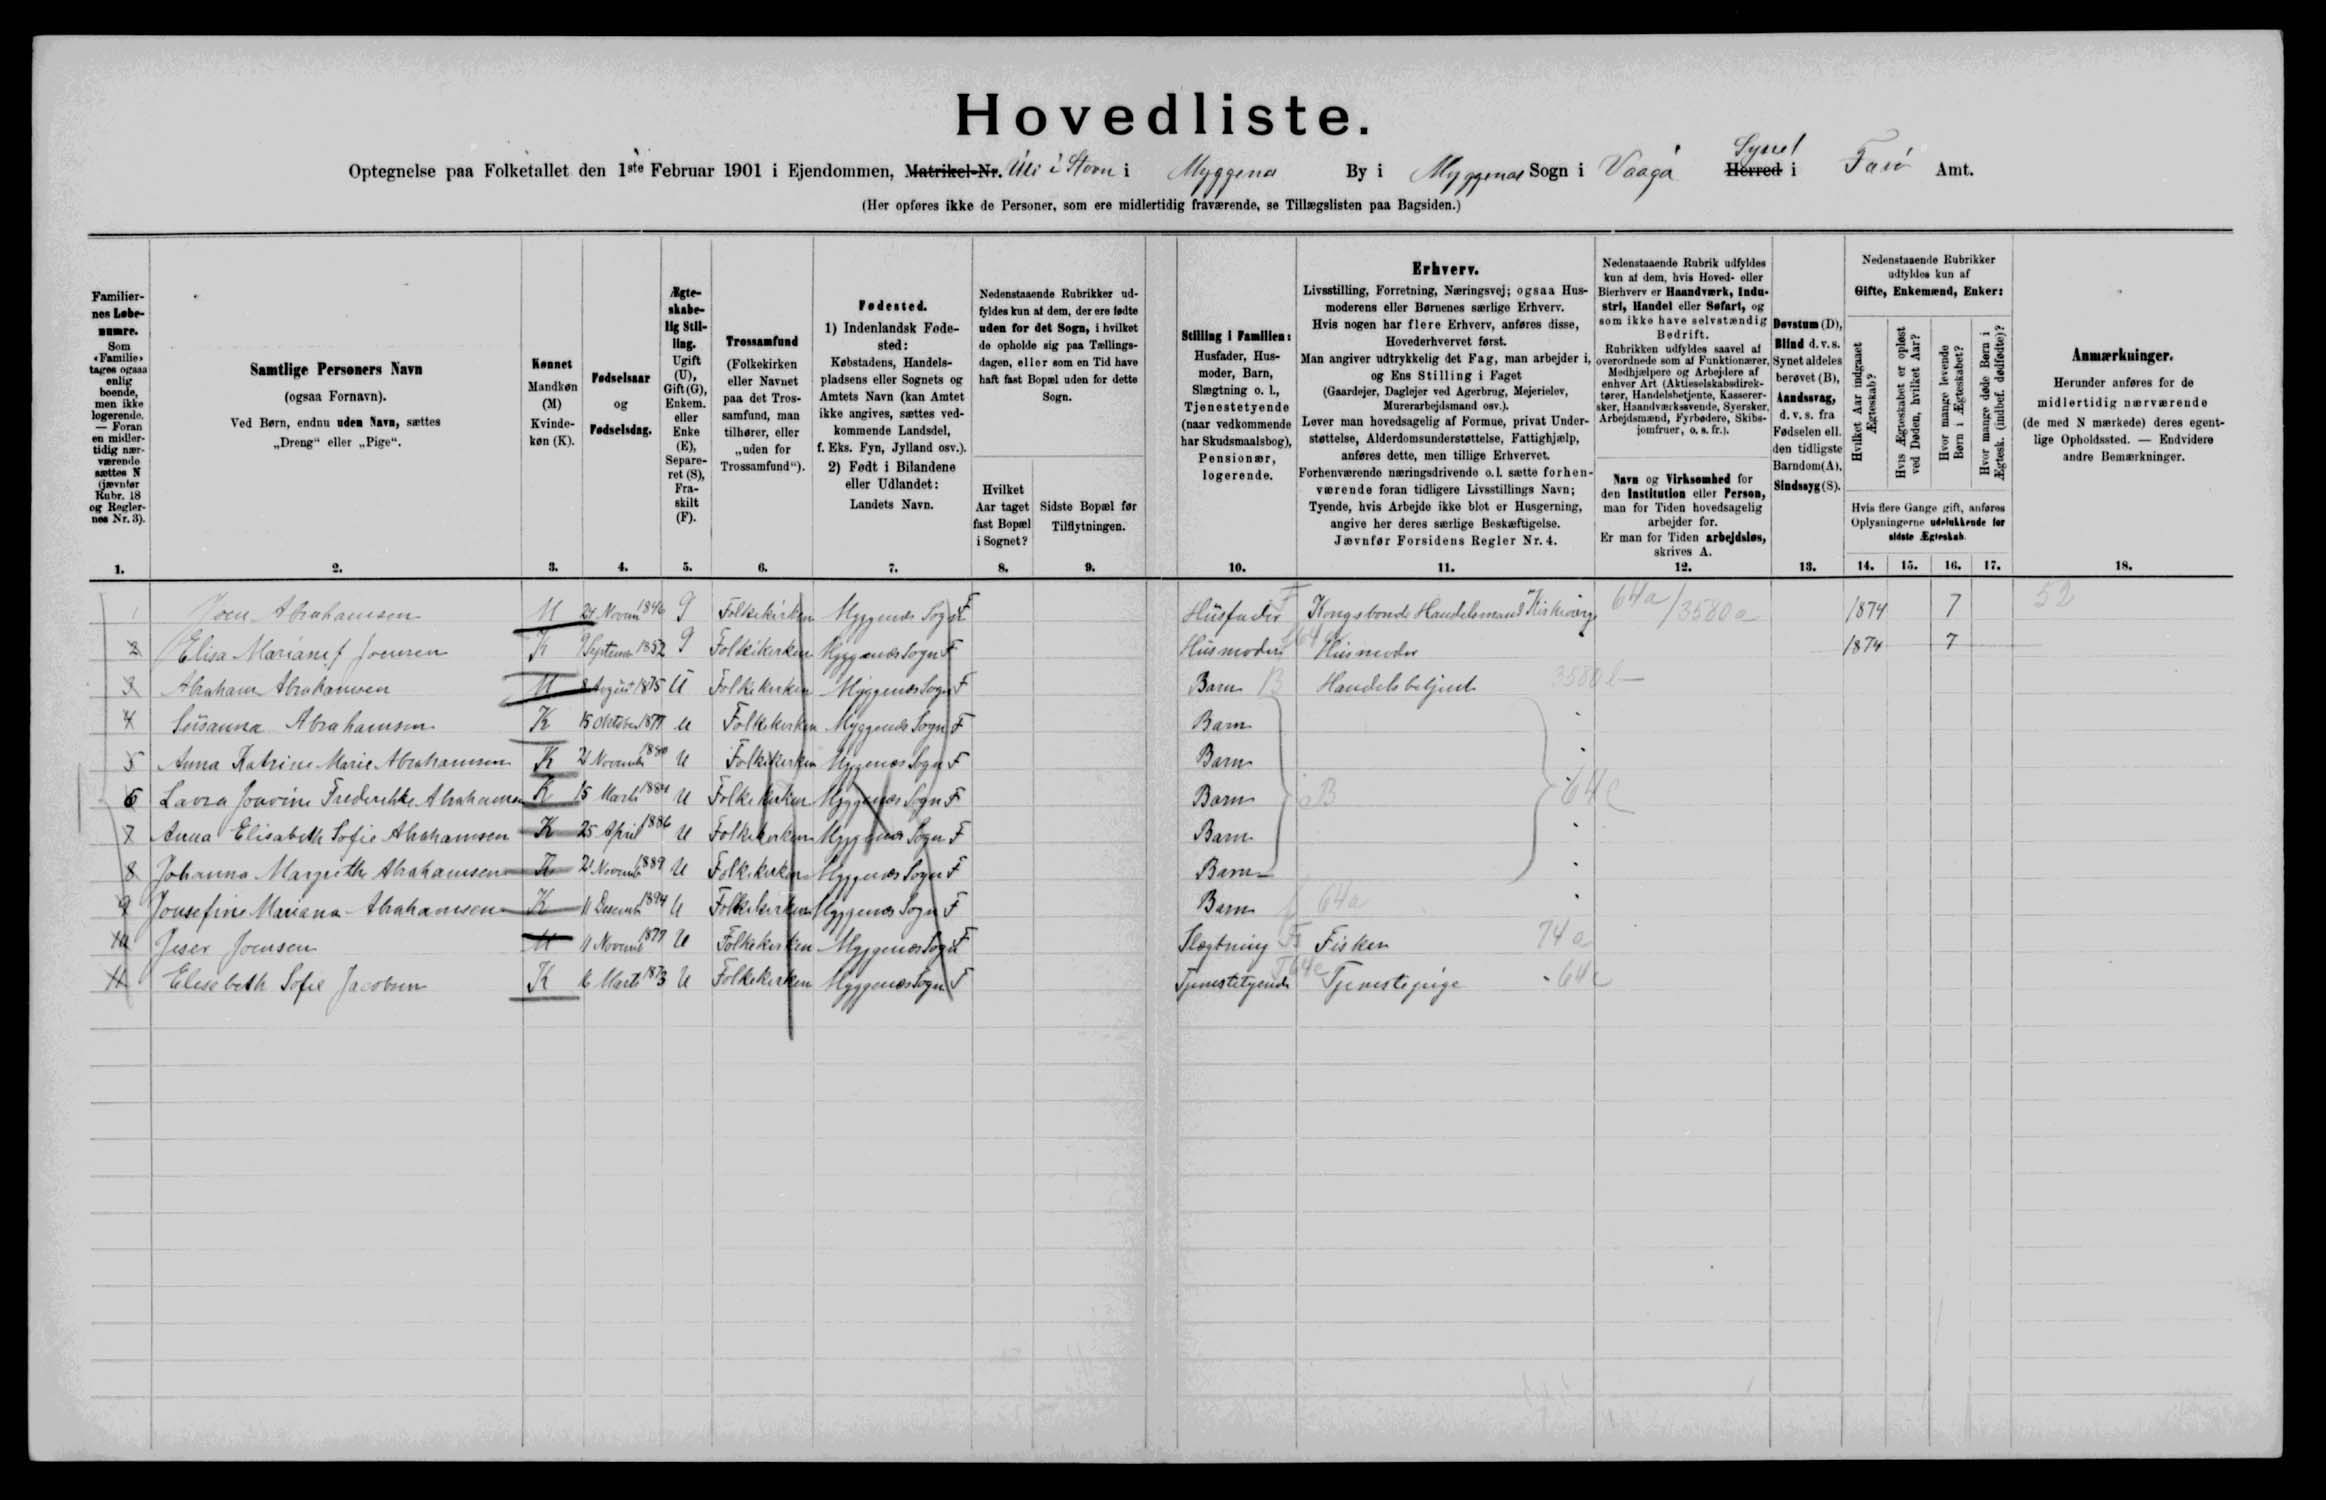 Hovedliste.
Optegnelse paa Folketallet den 1ste Februar 1901 i Ejendommen, Matrikel-Nr. Uti i Stovu i Myggenæs By i Myggenæs Sogn i Vaagø Herred Syssel i Færø Amt.
(Her opføres ikke de Personer, som ere midlertidig fraværende, se Tillægslisten paa Bagsiden.)
Familiernes Løbenumre.
Som «Familie» tages ogsaa enlig boende, men ikke logerende. — Foran en midlertidig nærværende sættes N (jævnfør Rubr. 18 og Reglernes Nr. 3).
Samtlige Personers Navn
(ogsaa Fornavn).
Ved Børn, endnu uden Navn, sættes
„Dreng“ eller „Pige“.
Kønnet
Mandkøn (M)
Kvindekøn (K).
Fødselsaar
og
Fødselsdag.
Ægteskabelig Stilling.
Ugift (U), Gift (G), Enkem. eller Enke (E), Separeret (S), Fraskilt (F).
Trossamfund
(Folkekirken eller Navnet paa det Trossamfund, man tilhører, eller „uden for Trossamfund“).
Fødested.
1) Indenlandsk Fødested:
Købstadens, Handelspladsens eller Sognets og Amtets Navn (kan Amtet ikke angives, sættes vedkommende Landsdel, f. Eks. Fyn, Jylland osv.).
2) Født i Bilandene eller Udlandet:
Landets Navn.
Nedenstaaende Rubrikker udfyldes kun af dem, der ere fødte uden for det Sogn, i hvilket de opholde sig paa Tællingsdagen, eller som en Tid have haft fast Bopæl uden for dette Sogn.
Hvilket Aar taget fast Bopæl i Sognet?
Sidste Bopæl før Tilflytningen.
Stilling i Familien:
Husfader, Husmoder, Barn, Slægtning o. l., Tjenestetyende (naar vedkommende har Skudsmaalsbog), Pensionær, logerende.
Erhverv.
Livsstilling, Forretning, Næringsvej; ogsaa Husmoderens eller Børnenes særlige Erhverv.
Hvis nogen har flere Erhverv, anføres disse, Hovederhvervet først.
Man angiver udtrykkelig det Fag, man arbejder i, og Ens Stilling i Faget
(Gaardejer, Daglejer ved Agerbrug, Mejerielev, Murerarbejdsmand osv.).
Lever man hovedsagelig af Formue, privat Understøttelse, Alderdomsunderstøttelse, Fattighjælp, anføres dette, men tillige Erhvervet.
Forhenværende næringsdrivende o. l. sætte forhenværende foran tidligere Livsstillings Navn;
Tyende, hvis Arbejde ikke blot er Husgerning, angive her deres særlige Beskæftigelse.
Jævnfør Forsidens Regler Nr. 4.
Nedenstaaende Rubrik udfyldes kun af dem, hvis Hoved- eller Bierhverv er Haandværk, Industri, Handel eller Søfart, og som ikke have selvstændig Bedrift.
Rubrikken udfyldes saavel af overordnede som af Funktionærer, Medhjælpere og Arbejdere af enhver Art (Aktieselskabsdirektører, Handelsbetjente, Kasserersker, Haandværkssvende, Syersker, Arbejdsmænd, Fyrbødere, Skibsjomfruer, o. s. fr.).
Navn og Virksomhed for den Institution eller Person, man for Tiden hovedsagelig arbejder for.
Er man for Tiden arbejdsløs, skrives A.
Døvstum (D), Blind d. v. s. Synet aldeles berøvet (B), Aandssvag, d. v. s. fra Fødselen ell. den tidligste Barndom (A), Sindssyg (S).
Nedenstaaende Rubrikker udfyldes kun af
Gifte, Enkemænd, Enker:
Hvilket Aar indgaaet Ægteskab?
Hvis Ægteskabet er opløst ved Døden, hvilket Aar?
Hvor mange levende Børn i Ægteskabet?
Hvor mange døde Børn i Ægtesk. (indbef. dødfødte)?
Hvis flere Gange gift, anføres Oplysningerne udelukkende for sidste Ægteskab.
Anmærkninger.
Herunder anføres for de midlertidig nærværende (de med N mærkede) deres egentlige Opholdssted. — Endvidere andre Bemærkninger.
1. 2. 3. 4. 5. 6. 7. 8. 9. 10. 11. 12. 13. 14. 15. 16. 17. 18.
1 Joen Abrahamsen M 24 Novem 1846 G Folkekirken Myggenæs Sogn F Husfader F Kongsbonde Handelsmand Kirkeværge 64a/3580a 1874 7 52
2 Elisa Mariane f Joensen K 9 September 1852 G Folkekirken Myggenæs Sogn F Husmoder Husmoder 1874 7
3 Abraham Abrahamsen M 8 August 1875 U Folkekirken Myggenæs Sogn F Barn B Handelsbetjent 3580b
4 Susanna Abrahamsen K 15 Oktober 1877 U Folkekirken Myggenæs Sogn F Barn
5 Anna Katrine Marie Abrahamsen K 21 November 1880 U Folkekirken Myggenæs Sogn F Barn
6 Lavra Joavine Frederikke Abrahamsen K 15 Marts 1884 U Folkekirken Myggenæs Sogn F Barn B 64c
7 Anna Elisabeth Sofie Abrahamsen K 25 April 1886 U Folkekirken Myggenæs Sogn F Barn
8 Johanna Margrethe Abrahamsen K 21 November 1889 U Folkekirken Myggenæs Sogn F Barn
9 Jousefine Mariana Abrahamsen K 11 Decemb 1894 U Folkekirken Myggenæs Sogn F Barn 64a
10 Joensen M 11 Novemb 1877 U Folkekirken Myggenæs Sogn F Slægtning Fisker 74a
11 Elisebeth Sofie Jacobsen K 16 Marts 1873 U Folkekirken Myggenæs Sogn F Tjenestetyende 64c Tjenestepige 64c